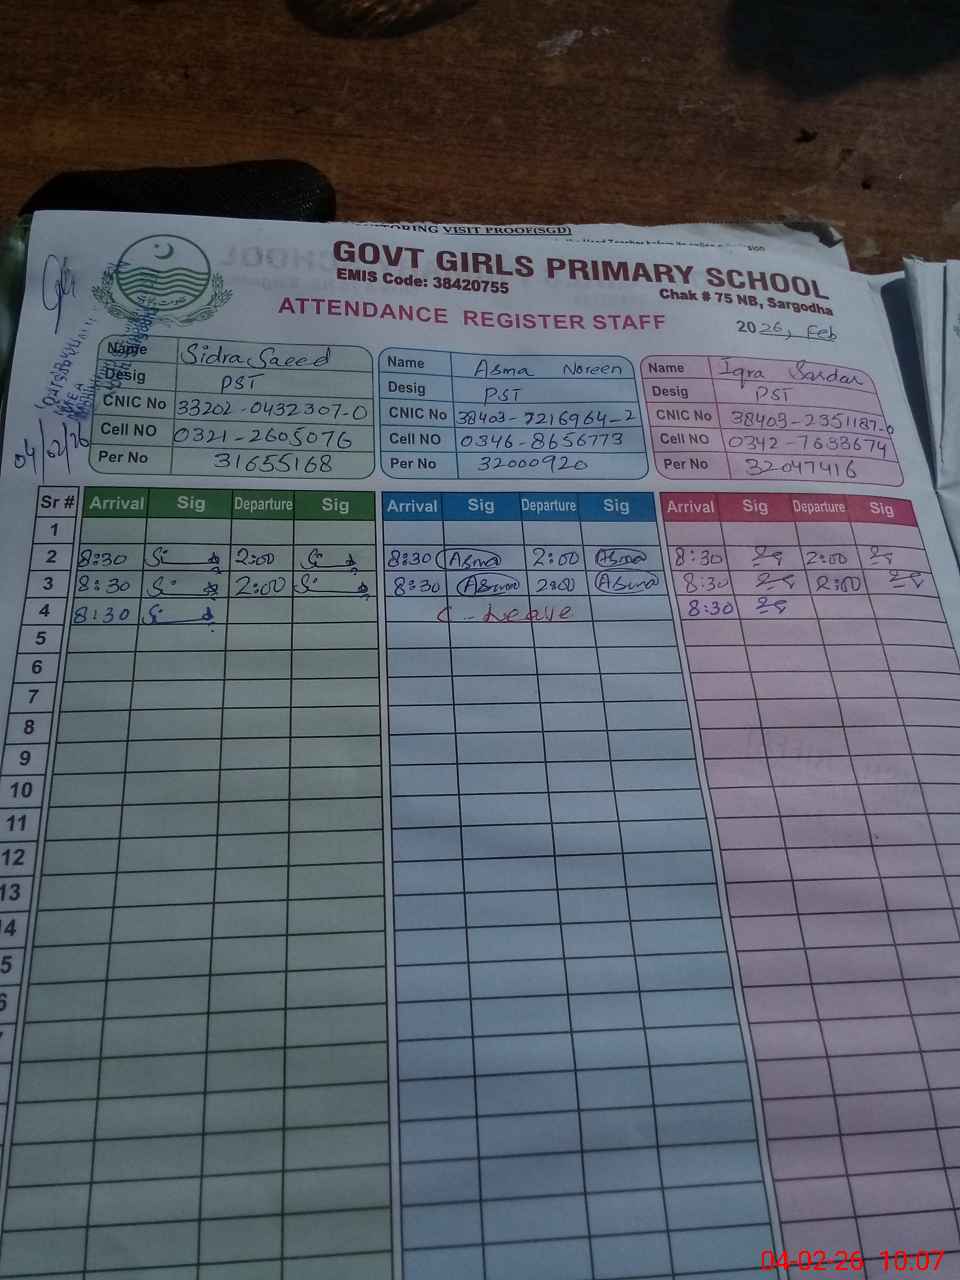 MONITORING VISIT PROOF(SGD)
GOVT GIRLS PRIMARY SCHOOL
EMIS Code: 38420755
Chak # 75 NB, Sargodha
ATTENDANCE REGISTER STAFF
2026, Feb
04/02/26
Name Sidra Saeed
Desig PST
CNIC No 33202-0432307-0
Cell NO 0321-2605076
Per No 31655168
Name Asma Noreen
Desig PST
CNIC No 38403-7216964-2
Cell NO 0346-8656773
Per No 32000920
Name Iqra Sardar
Desig PST
CNIC No 38403-2351187-0
Cell NO 0342-7633674
Per No 32047416
Sr # Arrival Sig Departure Sig Arrival Sig Departure Sig Arrival Sig Departure Sig
1
2 8:30 2:00 8:30 Asma 2:00 Asma 8:30 2:00
3 8:30 2:00 8:30 Asma 2:00 Asma 8:30 2:00
4 8:30 C-Leave 8:30
5
6
7
8
9
10
11
12
13
4
5
6
04-02-26 10:07